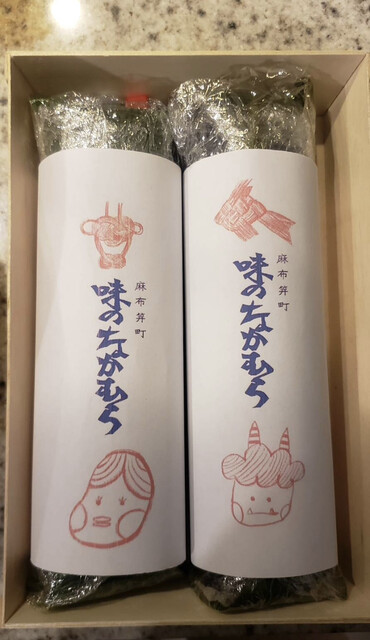 麻布笄町
味のなかむら
麻布笄町
味のなかむら